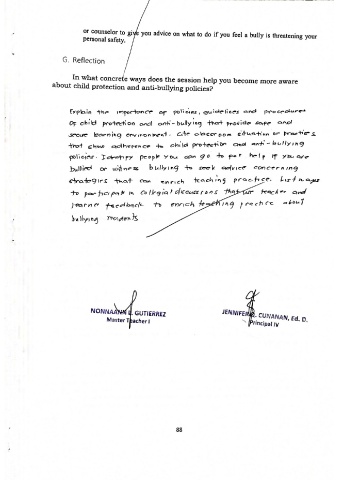 or counselor to give you advice on what to do if you feel a bully is threatening your
personal safety.
G. Reflection
In what concrete ways does the session help you become more aware
about child protection and anti-bullying policies?
Explain the importance of policies, guidelines and procedures
Of child protection and anti-bullying that provide safe and
secure learning environment. Cite classroom situation or practices
that show adherence to child protection and anti-bullying
policies. Identify people you can go to for help if you are
bullied or witness bullying to seek advice concerning
strategies that can enrich teaching practice. List ways
to participate in collegial discussions that use teacher and
learner feedback to enrich teaching practice about
bullying incidents
NONNAANN E. GUTIERREZ
Master Teacher I
JENNIFER CUNANAN, Ed. D.
Principal IV
88